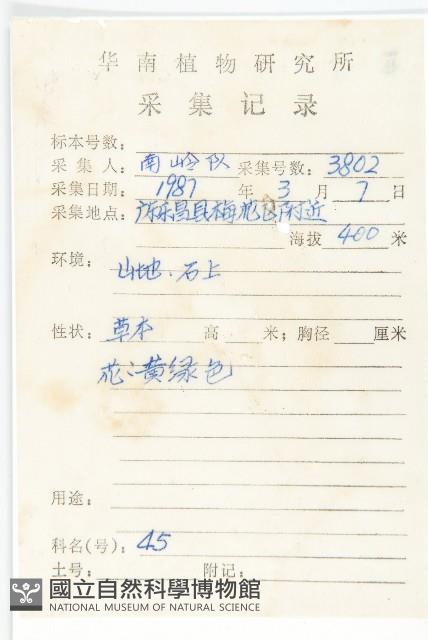 华南植物研究所
采集记录
标本号数：
采集人：南岭队 采集号数：3802
采集日期：1987 年 3 月 7 日
采集地点：乐昌县梅花区附近
海拔 400 米
环境：山地．石上
性状：草本 高 米；胸径 厘米
花：黄绿色
用途：
科名(号)：45
土号： 附记：
國立自然科學博物館
NATIONAL MUSEUM OF NATURAL SCIENCE